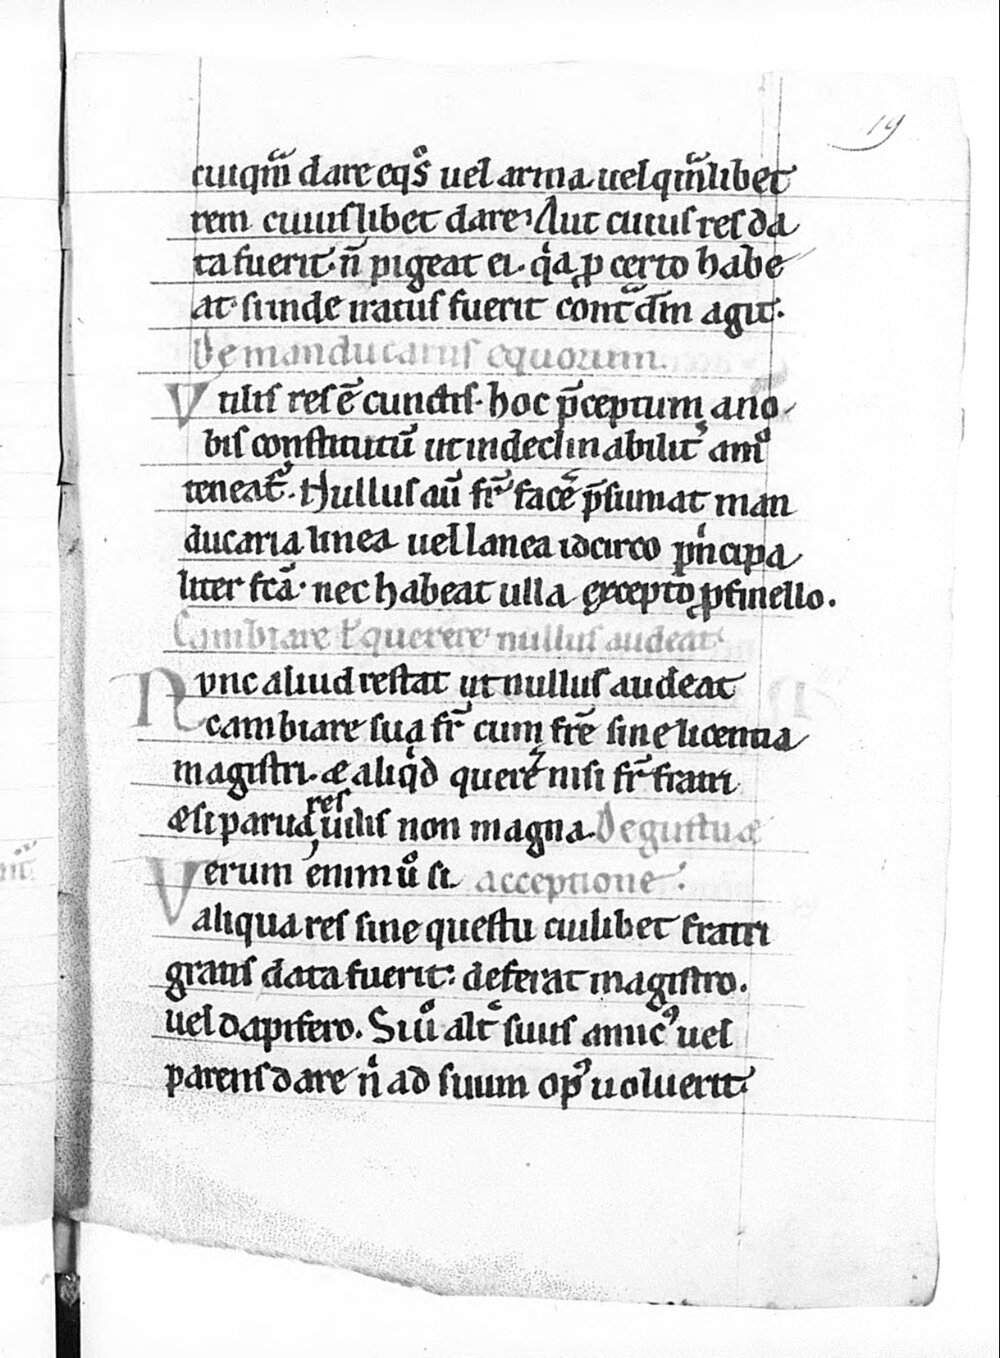 19
cuiqm̃ dare eqͦs uel arma uel qm̃libet
rem cuiuslibet dare. Aut cuius res da
ta fuerit. ñ pigeat ei. qͥa p certo habe
at. si inde iratus fuerit cont̃ dm̃ agit.
De manducariis equorum.
Vtilis res ẽ cunctis. hoc p̃ceptum a no
bis constitutũ ut indeclinabilit̃ amͦ
teneat̃. Nullus aũ fr̃ facẽ p̃sumat man
ducaria linea uel lanea idcirco pͥncipa
liter fc̃a. nec habeat ulla excepto pfinello.
Cambiare ł querere nullus audeat.
Nunc aliud restat ut nullus audeat
cambiare sua fr̃ cum fr̃e sine licentia
magistri. æ aliqͥd querẽ nisi fr̃ fratri
æ si parua res uilis non magna. De gustuæ
Verum enim uͦ si acceptione.
aliqua res sine questu cuilibet fratri
gratis data fuerit: deferat magistro.
uel dapifero. Si uͦ alt̃ suus amicꝰ uel
parens dare nͥ ad suum opꝰ uoluerit